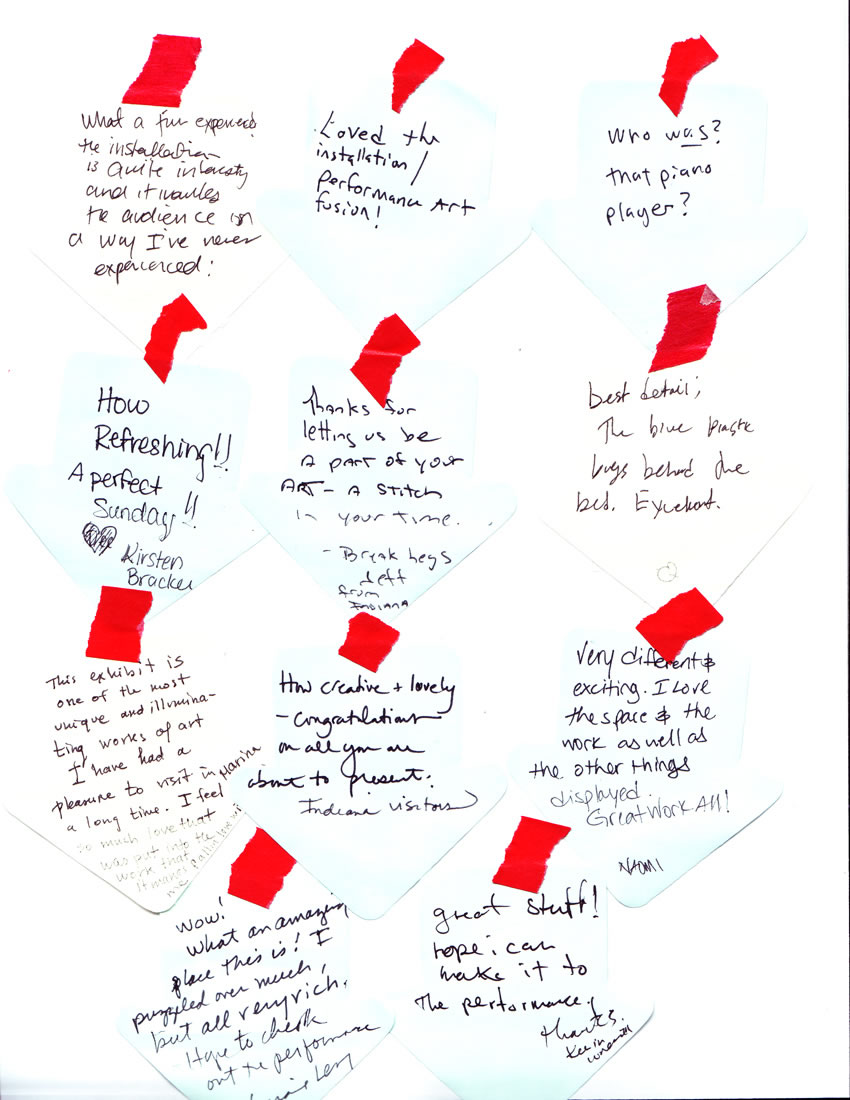 What a fun experience
the installation
is quite interesty
and it
the audience in
a way I've never
experienced!
Loved the
installation/
performance Art
fusion!
who was?
that piano
player?
How
Refreshing!!
A perfect
Sunday!!
Kirsten
Thanks for
letting us be
A part of your
ART - A Stitch
in your time.
- Break legs
Jeff
from
Indiana
best detail;
The blue plastic
bugs behind the
bed. Excellent.
This exhibit is
one of the most
unique and illumina-
ting works of art
I have had a
pleasure to visit in
a long time. I feel
so much love that
was put into the
work that
it makes
me
How creative + lovely
- congratulations
on all you are
about to present.
Indiana visitors
Very different &
exciting. I love
the space & the
work as well as
the other things
displayed.
Great Work All!
NAOMI
wow!
What an amazing
place this is! I
puzzled over much,
but all very rich.
- Hope to check
out the performance
great stuff!
hope i can
make it to
The performance!
thanks.
Kevin